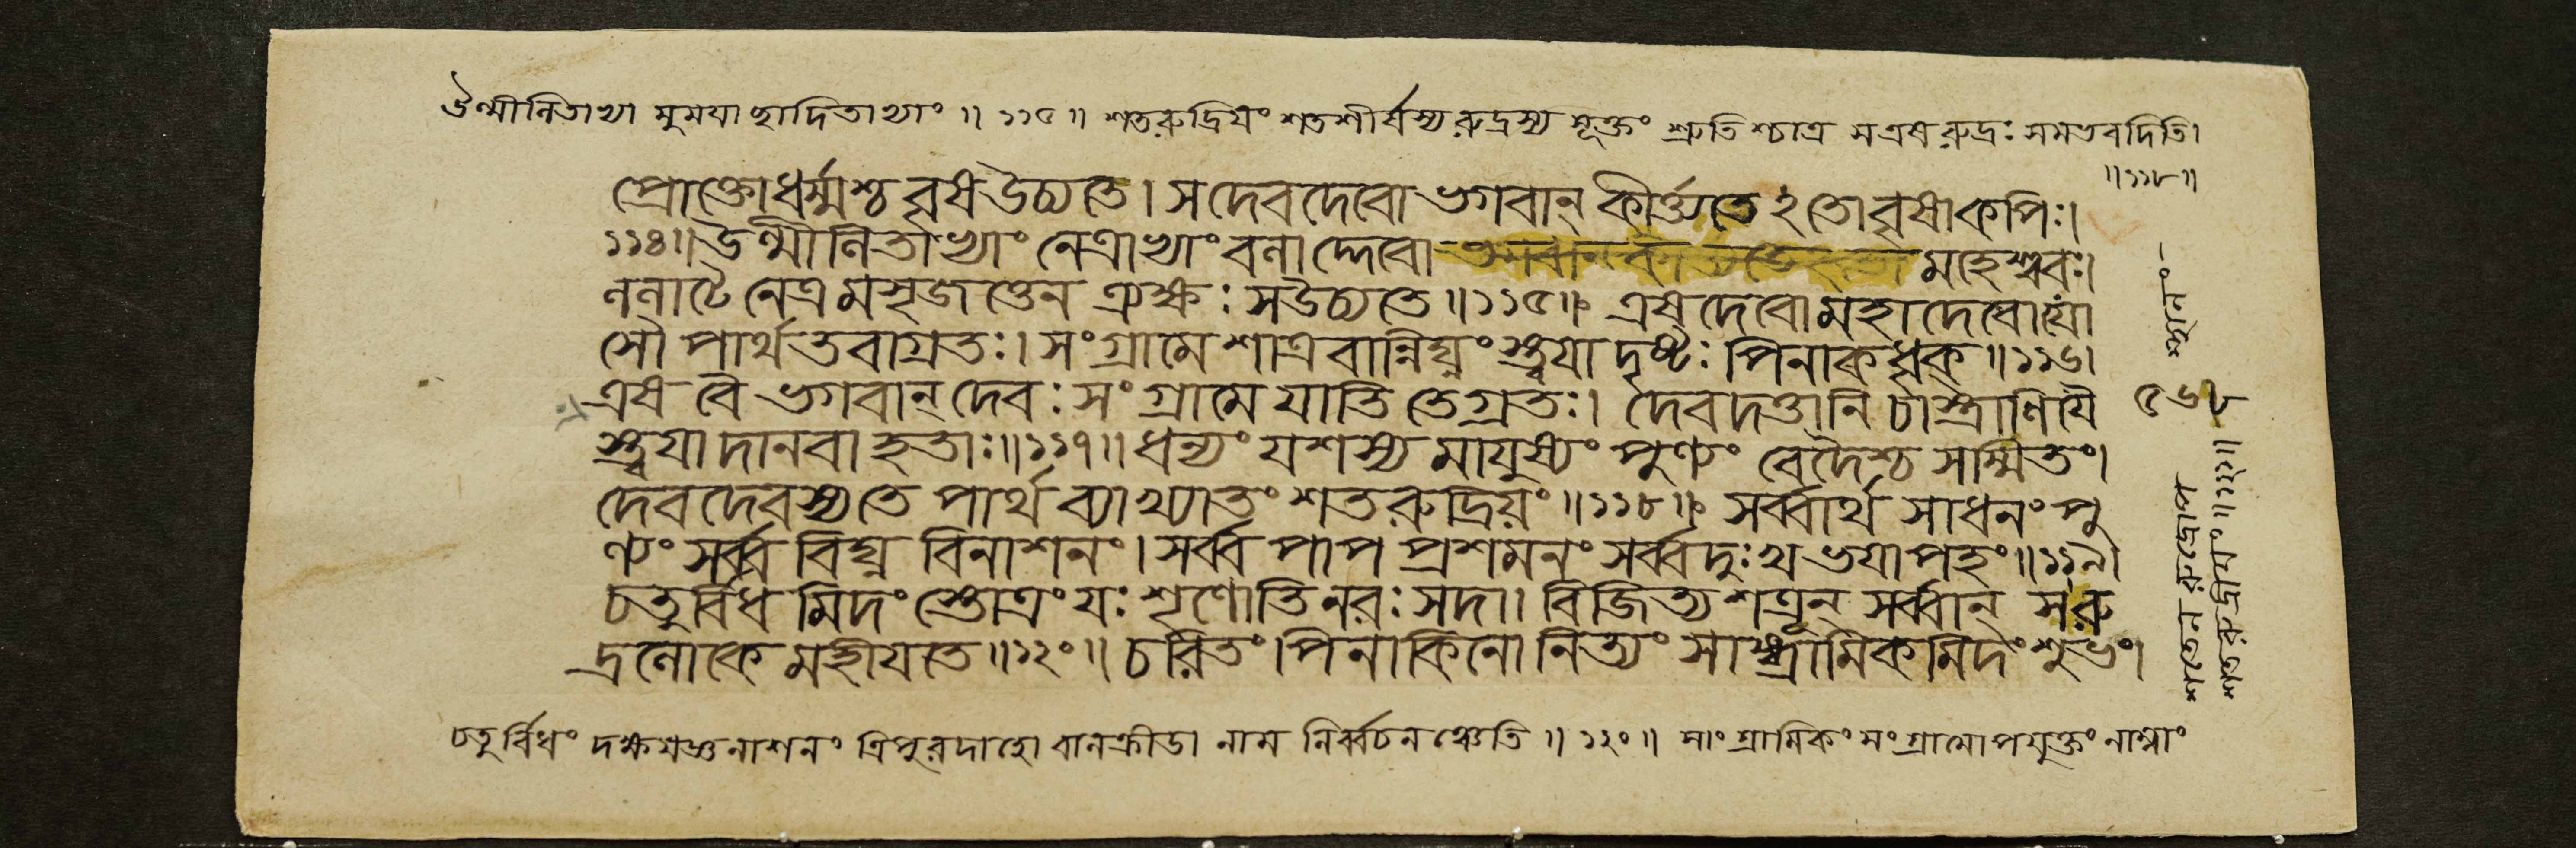 উন্মীলিতাখ্যা মুময়াচ্ছাদিতাখ্যাং ॥ ১১৫ ॥ শতরুদ্রিয়ং শতশীর্ষস্য রুদ্রস্য সূক্তং শ্রুতিশ্চাত্র স এষ রুদ্রঃ সমভবদিতি।
॥১১৮॥
প্রোক্তো ধর্ম্মশ্চ বৃষ উচ্যতে। স দেবদেবো ভগবান্ কীর্ত্ত্যতেঽতো বৃষাকপিঃ।
১১৪॥ উন্মীলিতাখ্যাং নেত্রাখ্যাং বলাদ্দেবো মহেশ্বরঃ।
ললাটে নেত্রমসৃজত্তেন ত্র্যক্ষঃ স উচ্যতে ॥১১৫॥ এষ দেবো মহাদেবো যো
সৌ পার্থ তবাগ্রতঃ। সংগ্রামে শাত্রবান্নিঘ্নং স্ত্বয়া দৃষ্টঃ পিনাকধৃক্ ॥১১৬।
এষ বৈ ভগবান্ দেবঃ সংগ্রামে যাতি তেগ্রতঃ। দেবদত্তানি চাস্ত্রাণি যৈ
স্ত্বয়া দানবা হতাঃ॥১১৭॥ ধন্যং যশস্যমায়ুষ্যং পুণ্যং বেদৈশ্চ সম্মিতং।
দেবদেবস্য তে পার্থ ব্যাখ্যাতং শতরুদ্রিয়ং ॥১১৮॥ সর্ব্বার্থ সাধনং পু
ণ্যং সর্ব্ব বিঘ্ন বিনাশনং। সর্ব্ব পাপ প্রশমনং সর্ব্বদুঃখ ভয়াপহং॥১১৯।
চতুর্বিধমিদং স্তোত্রং যঃ শৃণোতি নরঃ সদা। বিজিত্য শত্রূন্ সর্ব্বান্ স রু
দ্রলোকে মহীয়তে ॥১২০॥ চরিতং পিনাকিনো নিত্যং সাঙ্গ্রামিকমিদং শুভং।
৫৬৮
চতুর্বিধং দক্ষযজ্ঞনাশনং ত্রিপুরদাহো বালক্রীডা নাম নির্ব্বচনঞ্চেতি ॥ ১২০ ॥ সাংগ্রামিকং সংগ্রামোপযুক্তং নাম্নাং